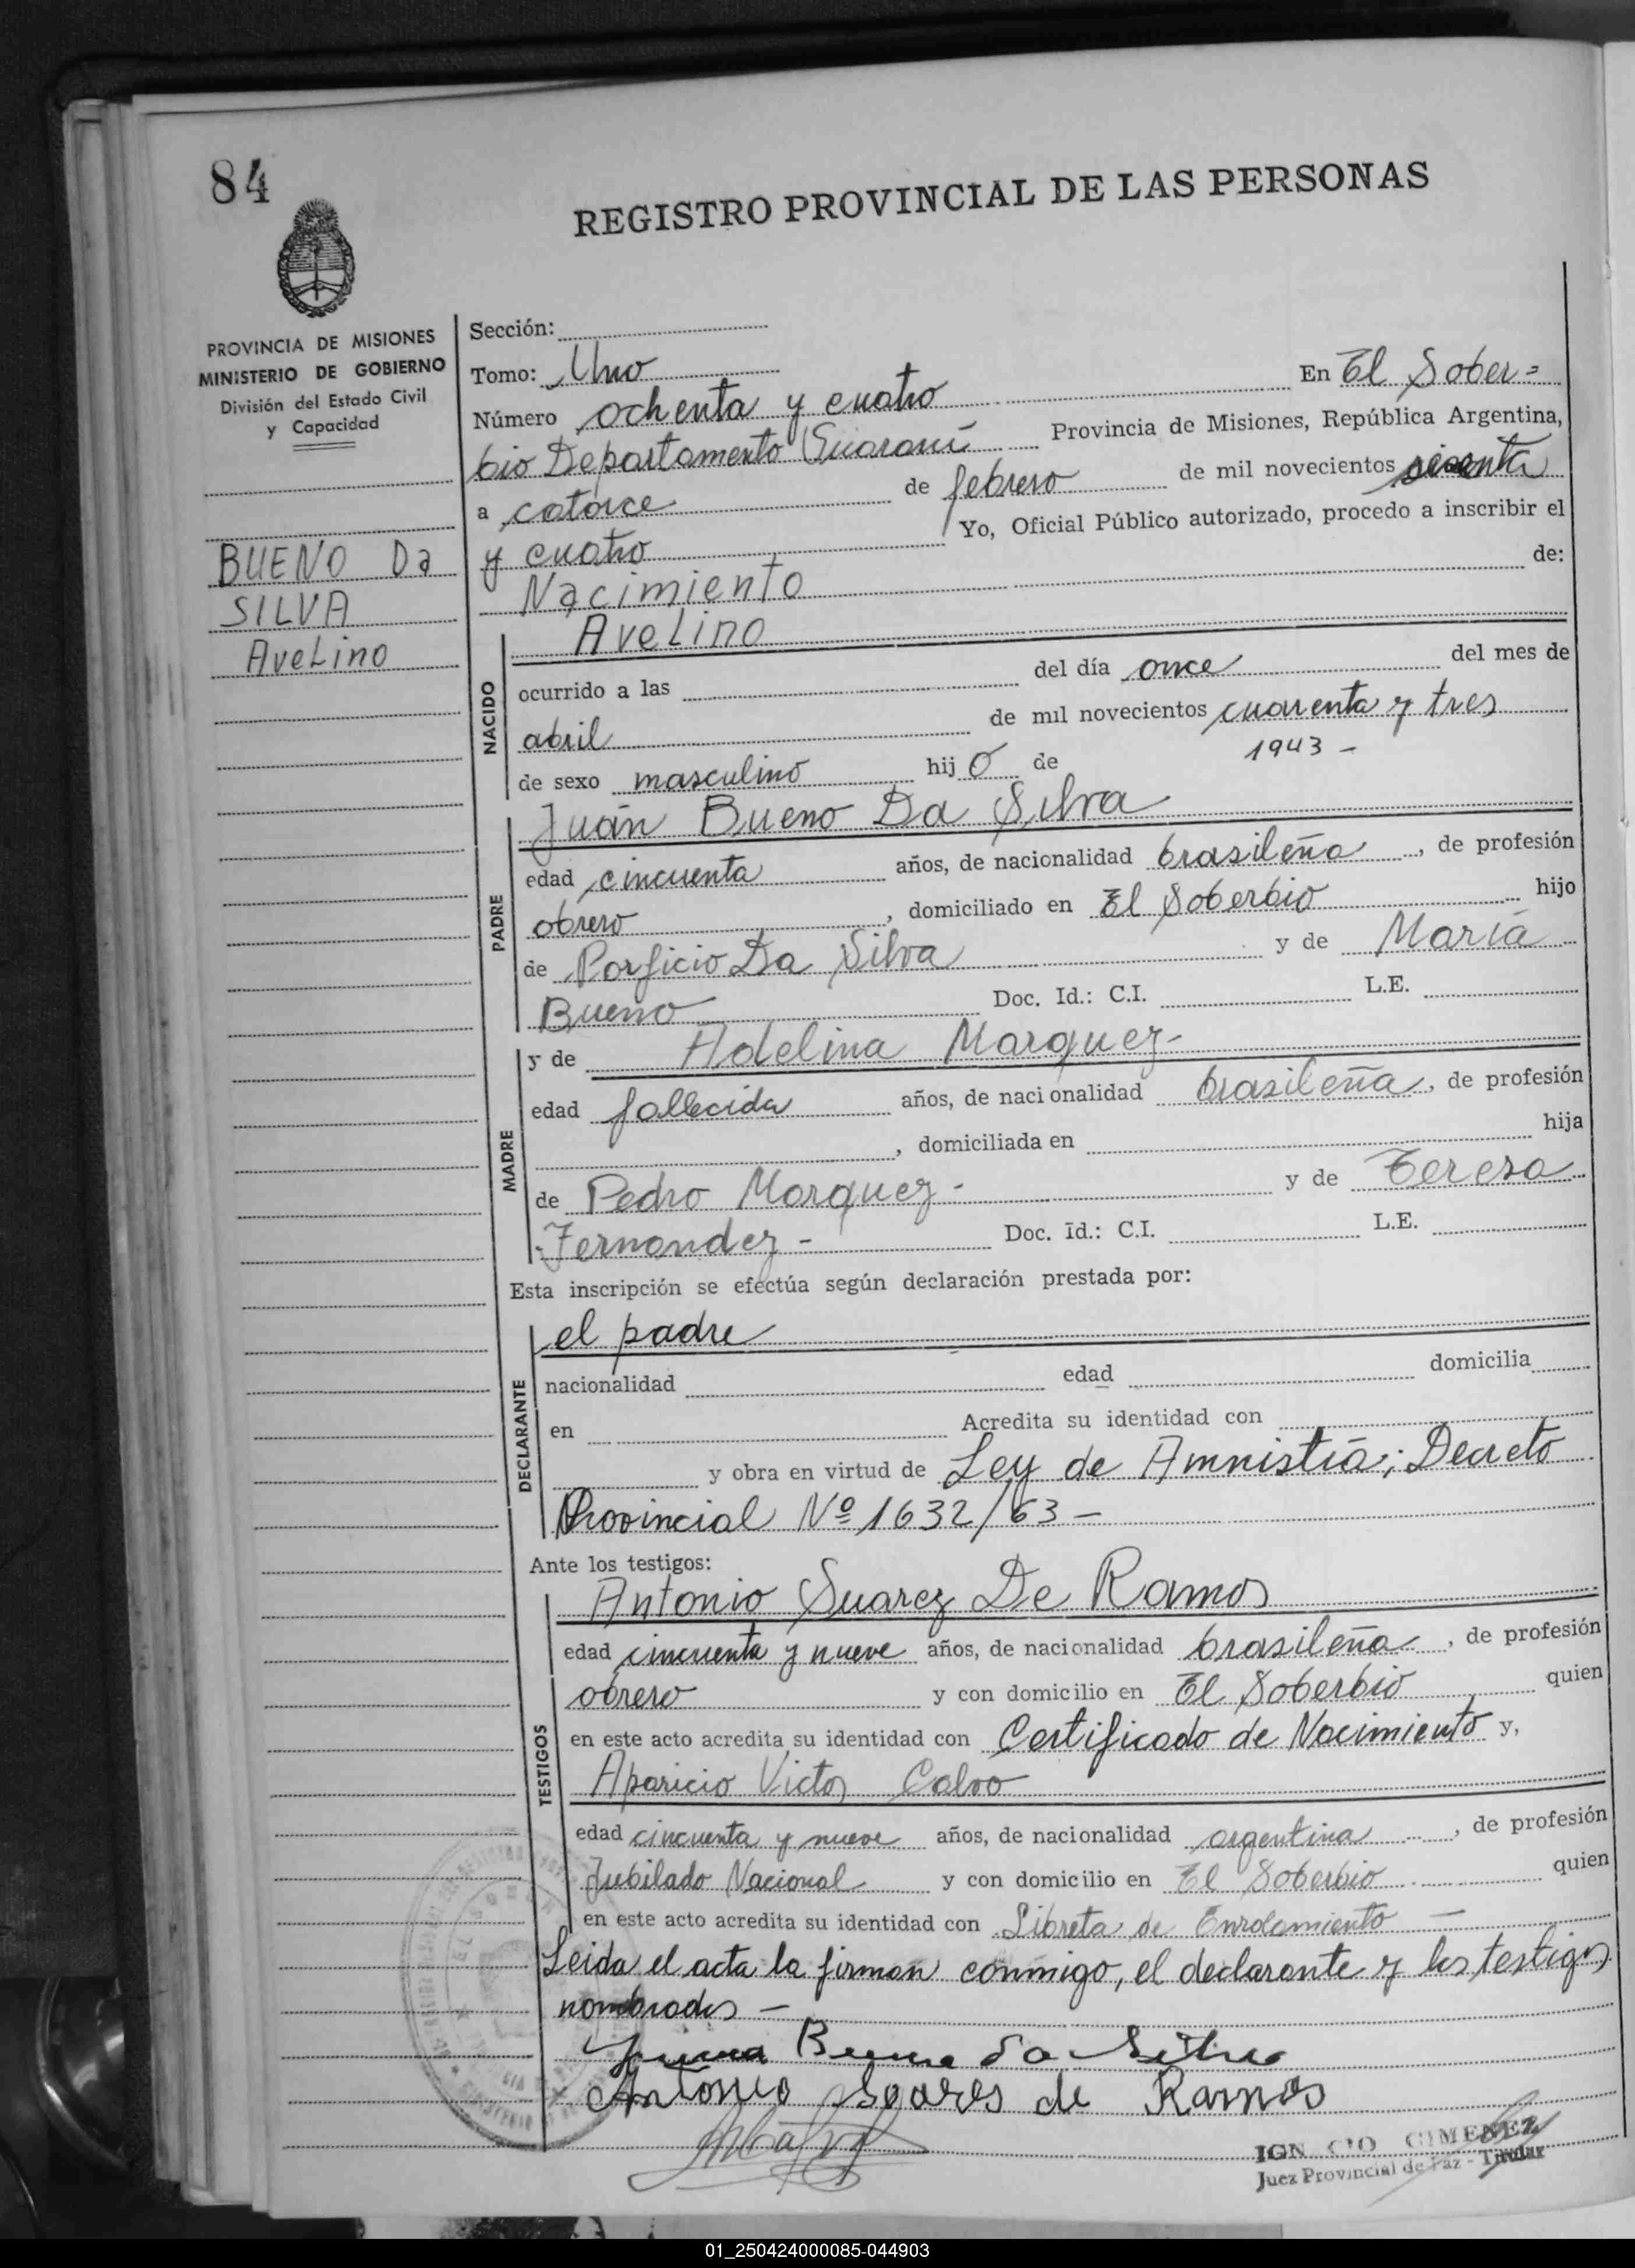 84
REGISTRO PROVINCIAL DE LAS PERSONAS
PROVINCIA DE MISIONES
MINISTERIO DE GOBIERNO
División del Estado Civil
y Capacidad
BUENO Da
SILVA
Avelino
Sección:
Tomo: Uno
Número ochenta y cuatro En El Sober=
bio Departamento Guaraní Provincia de Misiones, República Argentina,
a catorce de febrero de mil novecientos sesenta
y cuatro Yo, Oficial Público autorizado, procedo a inscribir el
Nacimiento de:
NACIDO
Avelino
ocurrido a las del día once del mes de
abril de mil novecientos cuarenta y tres
1943 -
de sexo masculino hij o de
PADRE
Juán Bueno Da Silva
edad cincuenta años, de nacionalidad brasileña, de profesión
obrero, domiciliado en El Soberbio hijo
de Porficio Da Silva y de María
Bueno Doc. Id.: C.I. L.E.
MADRE
y de Adelina Marquez-
edad fallecida años, de nacionalidad brasileña, de profesión
, domiciliada en hija
de Pedro Marquez- y de Teresa
Fernandez- Doc. Id.: C.I. L.E.
Esta inscripción se efectúa según declaración prestada por:
DECLARANTE
el padre
nacionalidad edad domicilia
en Acredita su identidad con
y obra en virtud de Ley de Amnistía; Decreto
Provincial Nº 1632/63 -
Ante los testigos:
TESTIGOS
Antonio Suarez De Ramos
edad cincuenta y nueve años, de nacionalidad brasileña, de profesión
obrero y con domicilio en El Soberbio quien
en este acto acredita su identidad con Certificado de Nacimiento y,
Aparicio Victor Calvo
edad cincuenta y nueve años, de nacionalidad argentina, de profesión
Jubilado Nacional y con domicilio en El Soberbio quien
en este acto acredita su identidad con Libreta de Enrolamiento -
Leida el acta la firman conmigo, el declarante y los testigos
nombrados -
Bueno da Silva
Antonio Soares de Ramos
IGN CIO GIMENEZ
Juez Provincial de Paz - Titular
01_250424000085-044903